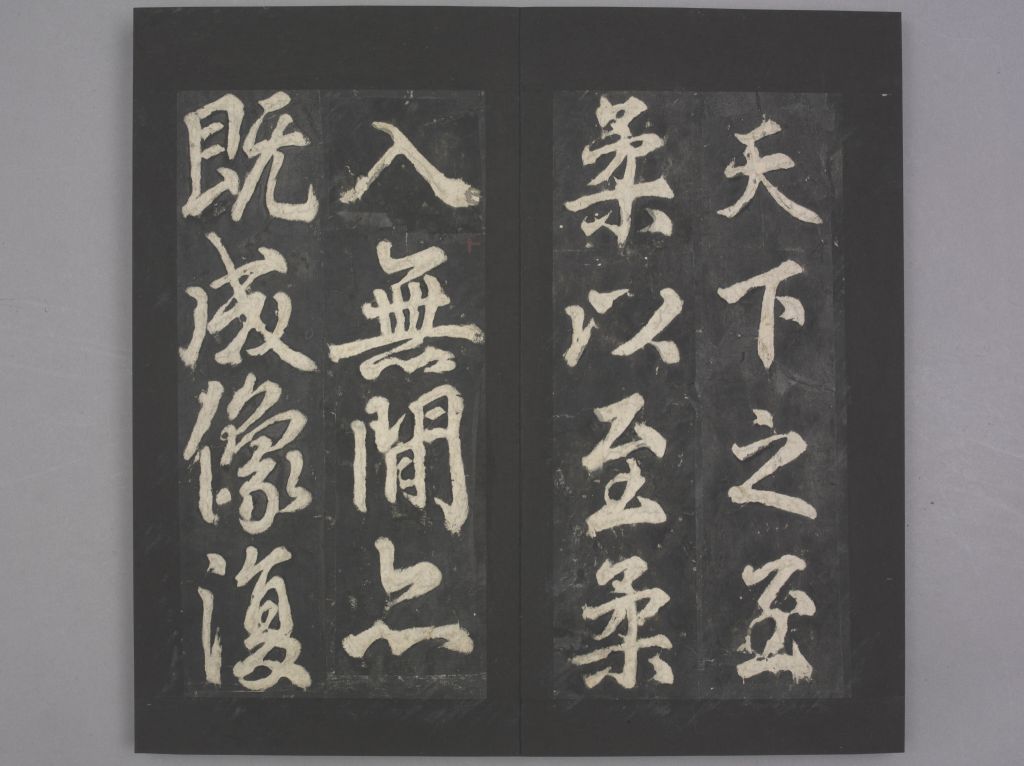 天下之至
柔以至柔
入無間亦
既成像復